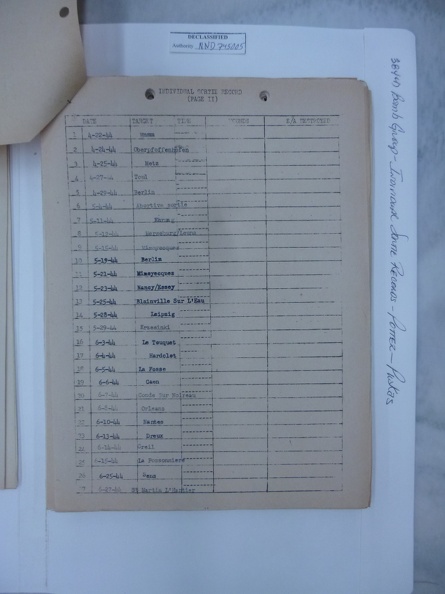 DECLASSIFIED
Authority NND 745005
INDIVIDUAL SORTIE RECORD
(PAGE II)
DATE TARGET TIME BOMBS E/A DESTROYED
1 4-22-44 Hamm
2 4-24-44 Oberpfaffenhofen
3 4-25-44 Metz
4 4-27-44 Toul
5 4-29-44 Berlin
6 5-4-44 Abortive sortie
7 5-11-44
8 5-12-44 Merseburg/Leuna
9 5-15-44 Mimoyecques
10 5-19-44 Berlin
11 5-21-44 Mimoyecques
12 5-23-44 Nancy/Essey
13 5-25-44 Blainville Sur L'Eau
14 5-28-44 Leipzig
15 5-29-44 Krzesinki
16 6-3-44 Le Touquet
17 6-4-44 Hardelot
18 6-5-44 La Fosse
19 6-6-44 Caen
20 6-7-44 Conde Sur Noireau
21 6-8-44 Orleans
22 6-10-44 Nantes
23 6-13-44 Dreux
24 6-14-44 Creil
25 6-15-44 La Possonniere
26 6-25-44 Sens
27 6-27-44 St Martin L'Hortier
384th Bomb Group - Individual Sortie Records - Potter - Paukas